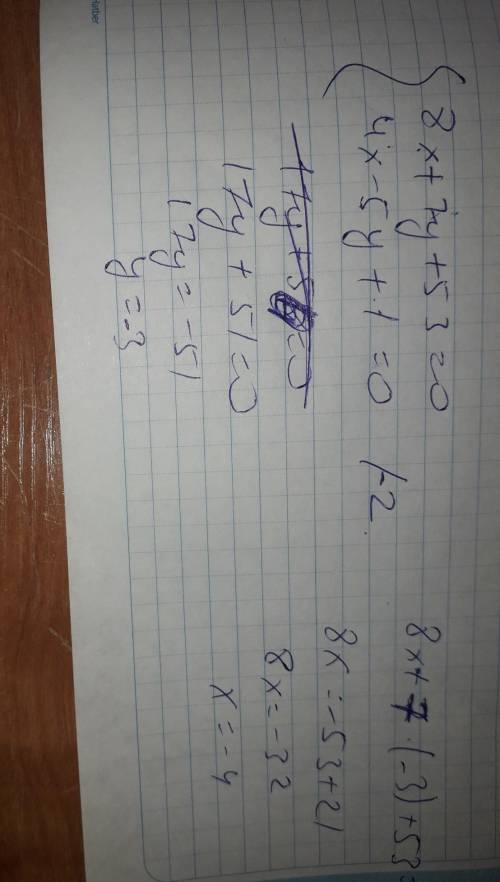 8x+7y+53=0
4x-5y+1=0 /-2.
17y+51=0
17y=-51
y=-3
8x+7·(-3)+53
8x=-53+21
8x=-32
x=-4